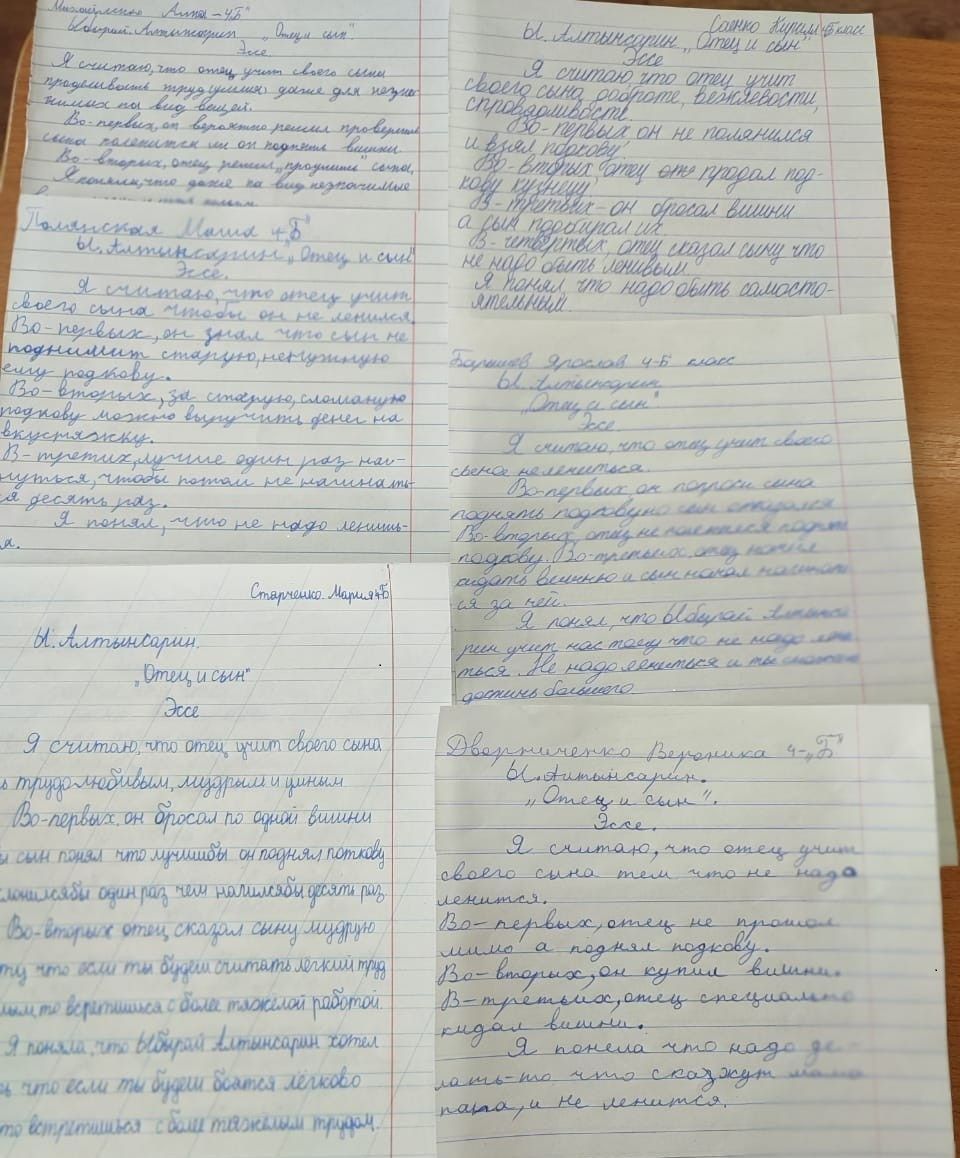 Алтынсарин „Отец и сын".
Эссе
Я считаю, что отец учит своего сына
трудиться даже для незна-
чимых на вид вещей.
Во-первых, он вероятно решил проверить
сына поленится ли он поднять вишни
Во-вторых, отец решил „проучить" сына,
Я поняла, что даже на вид незначимые
Саенко 4Б класс
Ы. Алтынсарин „Отец и сын".
Эссе
Я считаю что отец учит
своего сына доброте, вежлевости,
справдливосте.
Во-первых он не полянился
и взял подкову.
Во-вторых отец продал под-
кову кузнецу
В-третьих-он бросал вишни
а сын подбирал их.
В-четвёртых, отец сказал сыну что
не надо быть ленивым
Я понял что надо быть самосто-
ятельным.
Полянская Маша 4„Б"
Ы. Алтынсарин „Отец и сын"
Эссе.
Я считаю, что отец учит
своего сына чтобы он не ленился.
Во-первых, он знал что сын не
поднимит старую, ненужную
ему подкову.
Во-вторых, за старую, сломаную
подкову можно выручить денег на
вкустяжку.
В-третих, лучше один раз наг-
нуться, чтобы потом не нагинать-
ся десять раз.
Я понял, что не надо ленить-
я.
Ярослав 4-Б класс
Ы. Алтынсарин
„Отец и сын".
Эссе
Я считаю, что отец учит своего
сына нелениться.
Во-первых, он попроси сына
поднять подкову но сын отказался
Во-вторых, отец не поленился поднять
подкову. Во-третьих, отец начел
кидать вишню и сын начал нагинат
ся за ней.
Я понял, что Ыбырай Алтынса
рин учит нас тому что не надо лени
ться. Не надо лениться и ты сможешь
достичь большего.
Старченко. Мария 4Б
Ы. Алтынсарин.
„Отец и сын"
Эссе
Я считаю, что отец учит своего сына
ь трудолюбивым, мудрым и циным
Во-первых, он бросал по одной вишни
ы сын понял что лучшибы он поднял поткову
клонилсябы один раз чем налилсябы десять раз
Во-вторых отец сказал сыну мудрую
ту, что если ты будеш считать лёгкий труд
лым, то встретишься с более тяжёлой работой.
Я поняла, что Ыбырай Алтынсарин хотел
ь что если ты будеш боятся лёгково
то встретишься с боле тяжелым трудом.
Дворниченко Вероника 4-„Б"
Ы. Алтынсарин.
„Отец и сын".
Эссе.
Я считаю, что отец учит
своего сына тем что не надо
ленится.
Во-первых, отец не прошол
мимо а поднял подкову.
Во-вторых, он купил вишни.
В-третьих, отец специально
кидал вишни.
Я понела что надо де-
лать-то что скажут мама
папа, и не ленится.